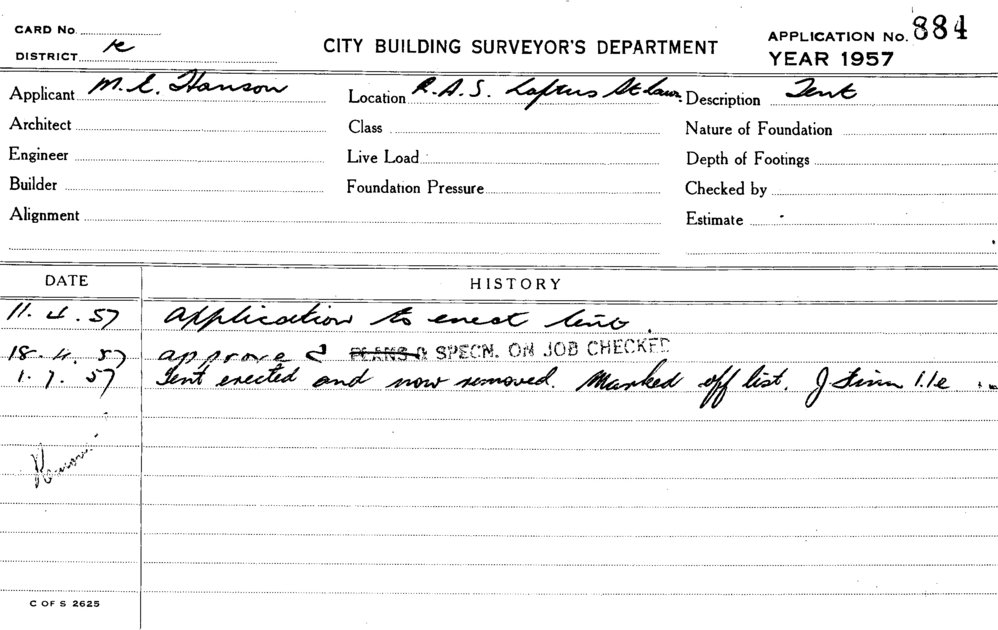 CARD No.
DISTRICT K
CITY BUILDING SURVEYOR'S DEPARTMENT
APPLICATION No. 884
YEAR 1957
Applicant M. E. Hanson
Location R.A.S. Loftus St Lawn
Description Tent
Architect
Class
Nature of Foundation
Engineer
Live Load
Depth of Footings
Builder
Foundation Pressure
Checked by
Alignment
Estimate
DATE HISTORY
11. 4. 57 Application to erect tent.
18. 4. 57 approved PLANS & SPECN. ON JOB CHECKED
1. 7. 57 Tent erected and now removed. Marked off list.
C OF S 2625